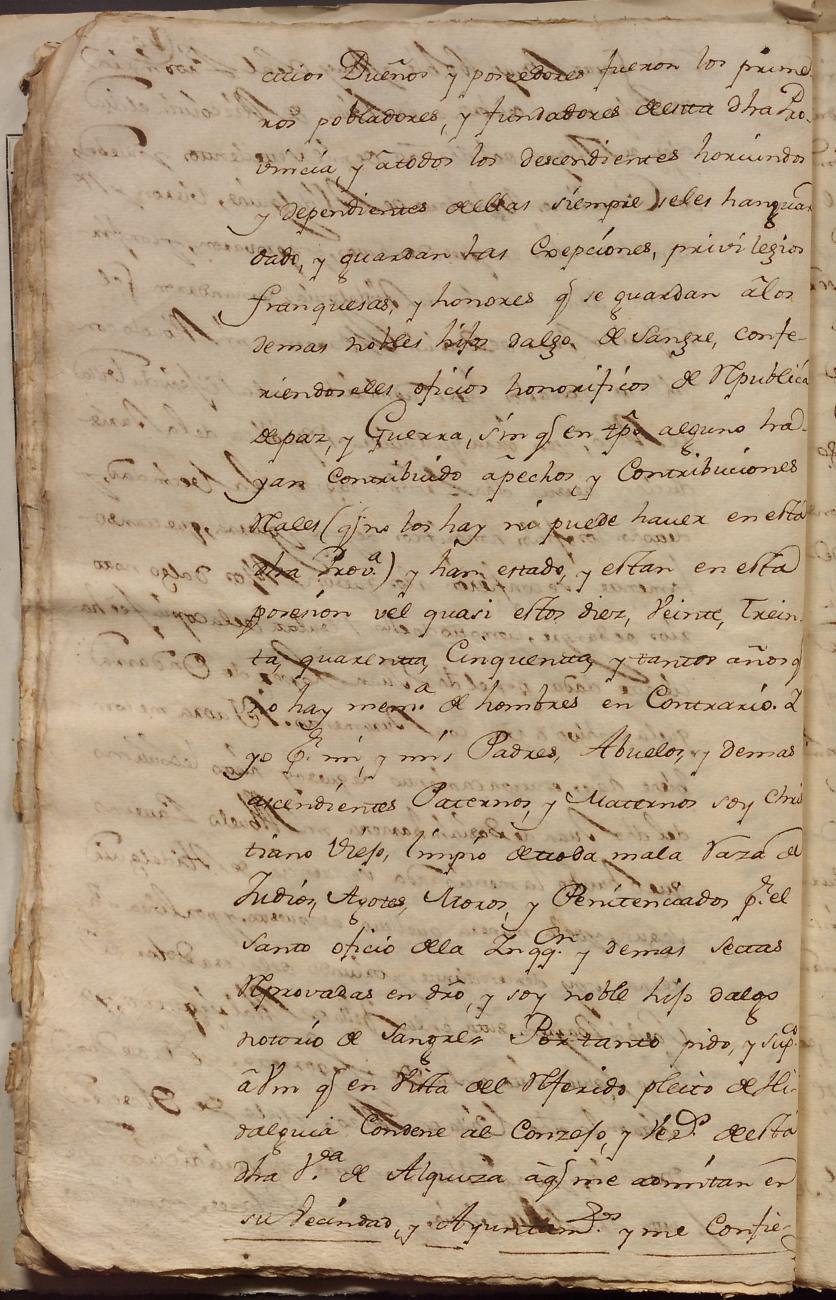 cuios Dueños y poseedores fueron los prime
ros pobladores, y fundadores desta dha Pro-
vincia, y átodos los descendientes horiundos
y dependientes dellas siempre seles hanguar
dado, y guardan las Exepciones, privilegios
franquesas, y honores q̃ se guardan álos
demas nobles hijos dalgo de sangre, confe-
riendoseles oficios honorificos de Republica
depaz, y Guerra, sin q̃ en tpõ alguno ha-
yan Contribuido ápechos, y Contribuciones
Reales (q̃ no los hay ni puede haver en esta
dha Prov.ª) y han estado, y estan en esta
posesion vel quasi estos diez, Veinte, Trein-
ta, quarenta, Cinquenta, y tantos años q̃
no hay mem.ª de hombres en Contrario. Y
yo p.r mi, y mis Padres, Abuelos, y demas
ascendientes Paternos, y Maternos soy Chris
tiano Viejo, limpio detoda mala Raza de
Judios, Agotes, Moros, y Penitenciados p.r el
Santo oficio dela Inqq.on y demas sectas
Reprovadas en dro, y soy noble hijo dalgo
notorio de sangre Portanto pido, y sup.co
á Vm q̃ en Vista del Referido pleito de Hi-
dalguia Condene ál Conzejo, y Vez.s desta
dha V.ª de Alquiza áq̃ me admitan en
su Vecindad, y Ayuntam.tos y me Confie-